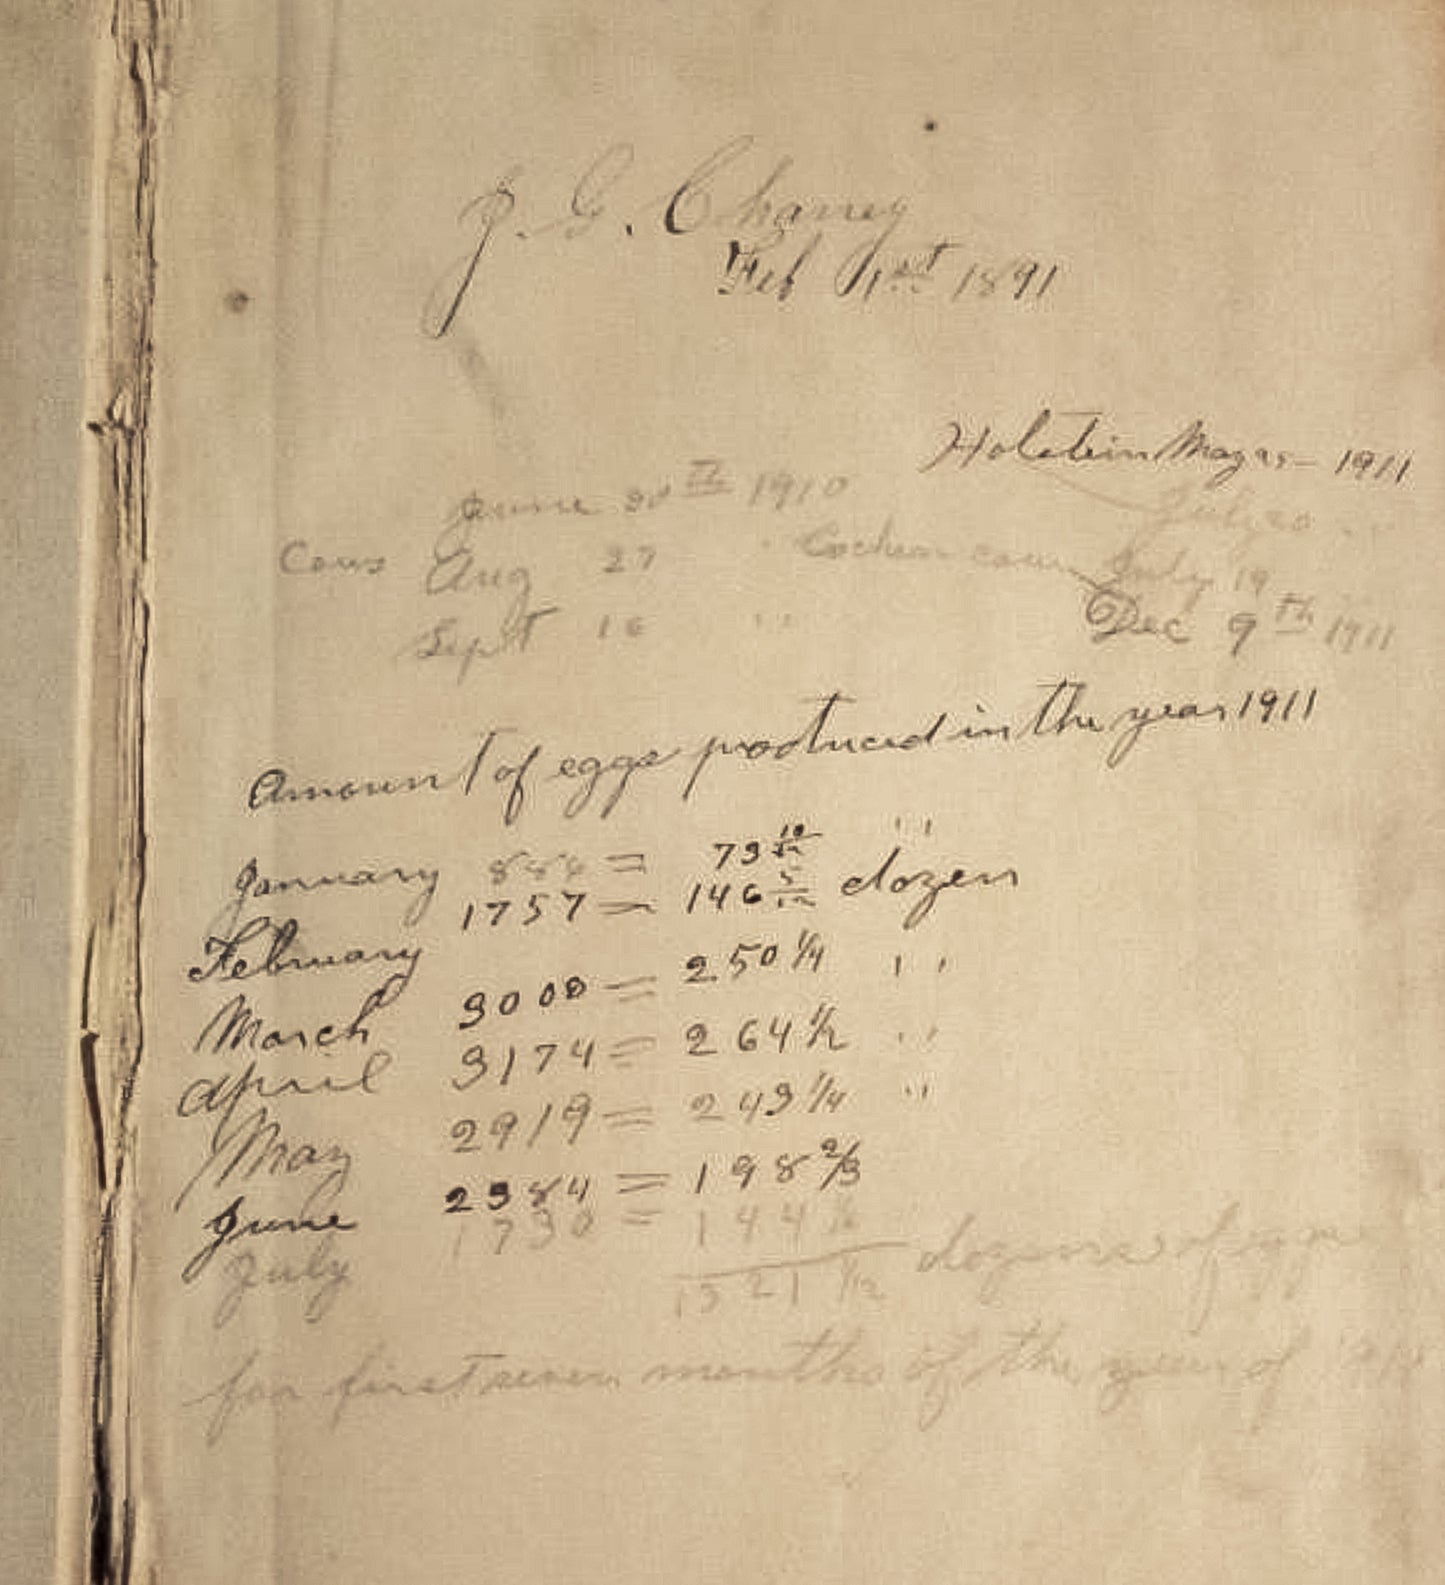 J. G. Chaney
Feb 1st 1891
Holstein Magas— 1911
June 30th 1910 July 20 " "
Cows Aug 27 " Cochran cow July 19
Sept 16 " " Dec 9th 1911
Amount of eggs produced in the year 1911
January 886 = 73 10/12 " "
1757 = 146 5/12 dozen
February
3000 = 250 1/4 " "
March
3174 = 264 1/2 " "
April
2919 = 243 1/4 " "
May
2384 = 198 2/3
June
1730 = 144 1/6
July
1321 1/12 dozens of eggs
for first seven months of the year of 1911